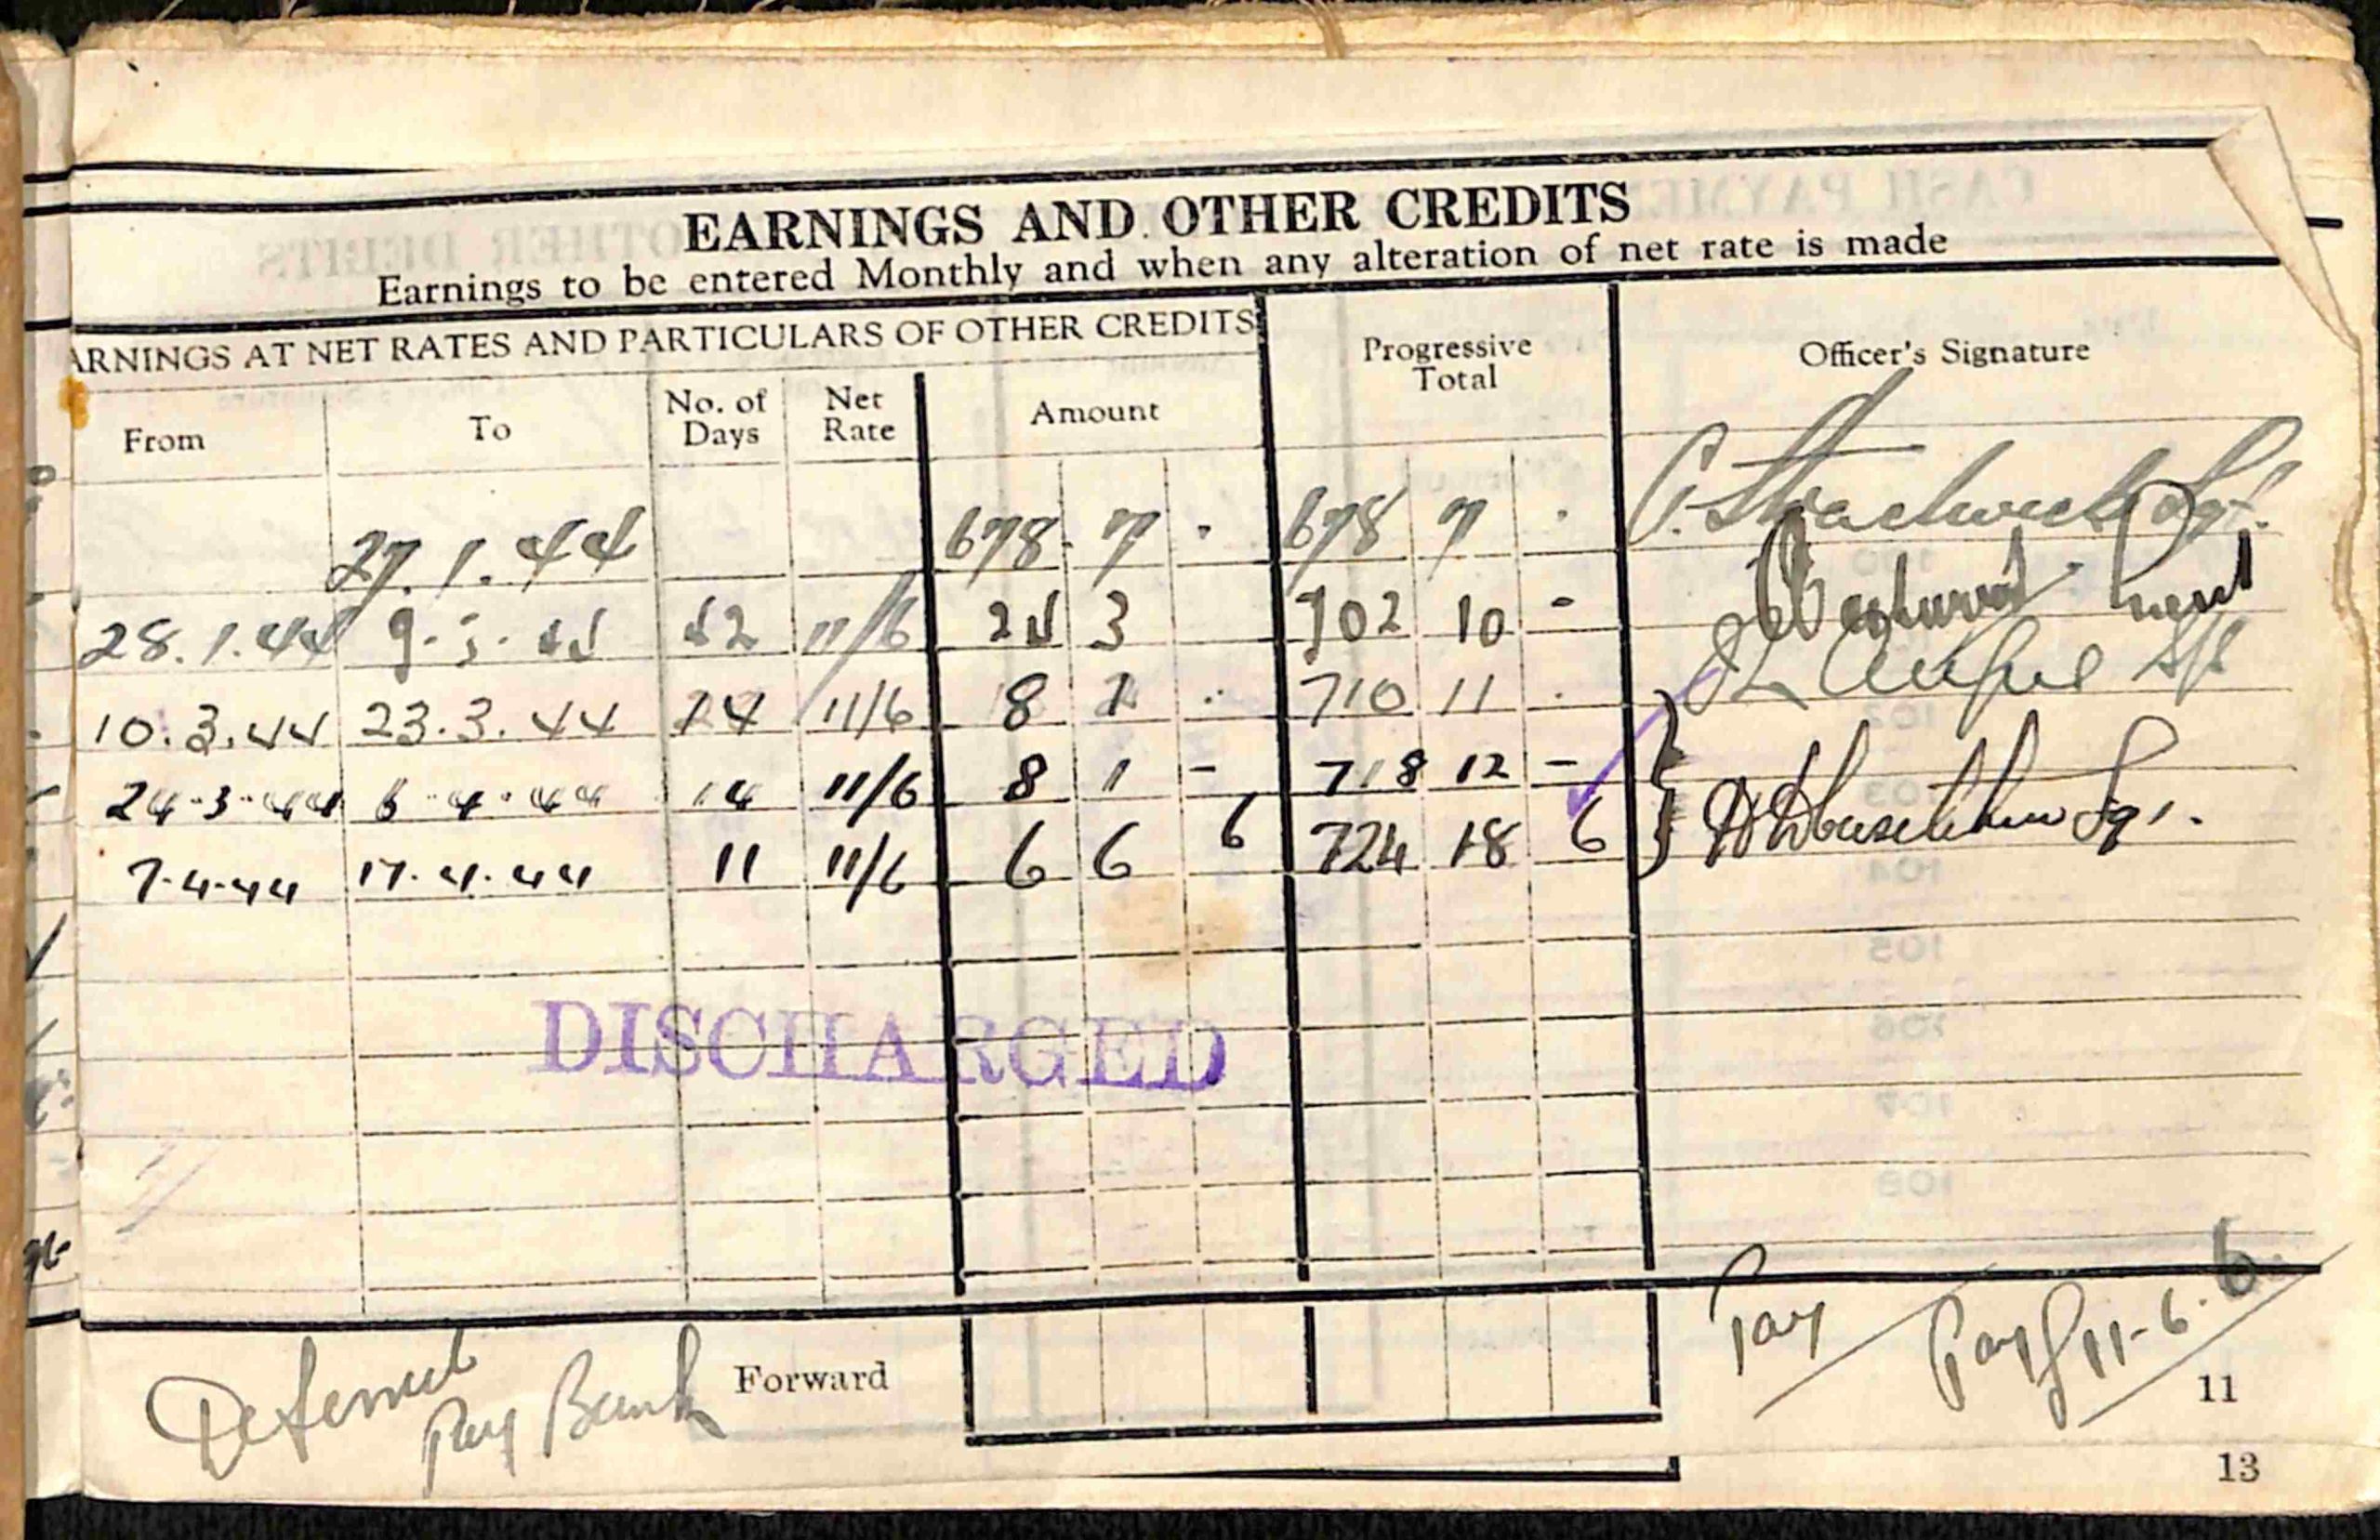 EARNINGS AND OTHER CREDITS
Earnings to be entered Monthly and when any alteration of net rate is made
ARNINGS AT NET RATES AND PARTICULARS OF OTHER CREDITS
Progressive Total
Officer's Signature
From To No. of Days Net Rate Amount
27.1.44 678 7 - 678 7 -
28.1.44 9.3.44 42 11/6 24 3 702 10 -
10.3.44 23.3.44 14 11/6 8 1 - 710 11 -
24-3-44 6-4-44 14 11/6 8 1 - 718 12 -
7-4-44 17.4.44 11 11/6 6 6 6 724 18 6
DISCHARGED
Deferred
Pay Bank
Forward
Pay
Pay £11-6-6
11
13